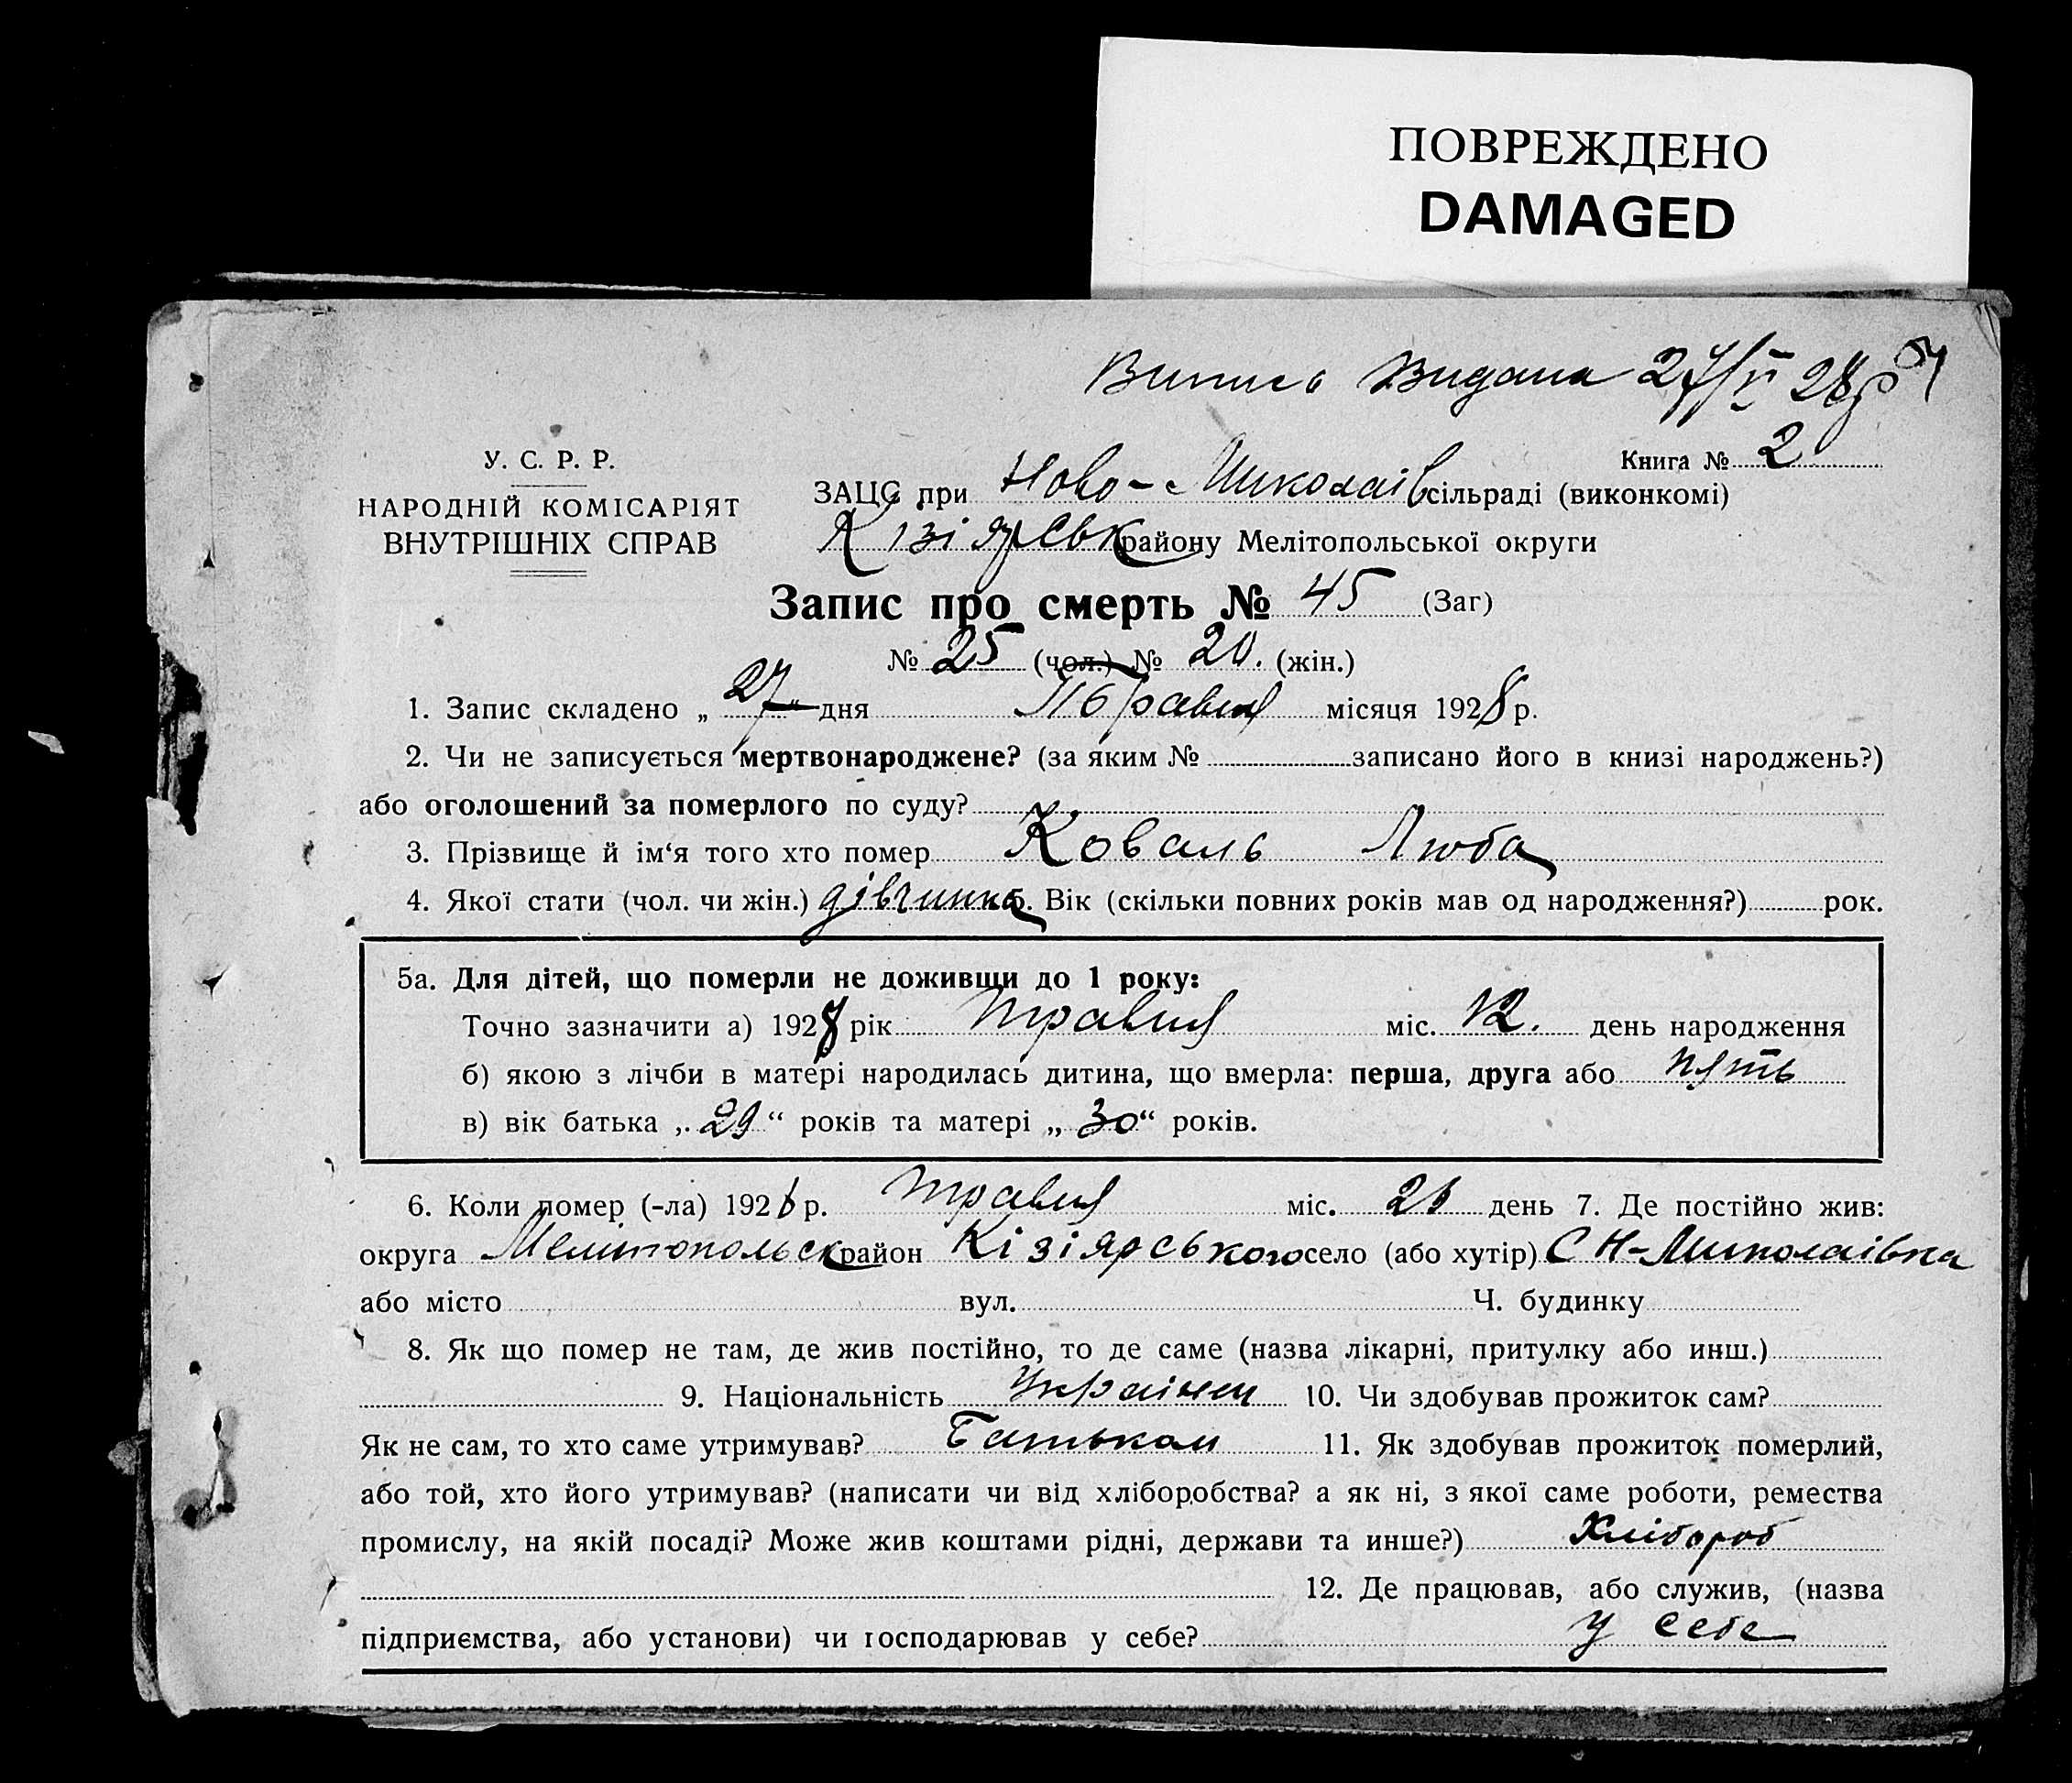 ПОВРЕЖДЕНО
DAMAGED
Випись Видана 27/V 28р
У. С. Р. Р.
Книга № 2
НАРОДНІЙ КОМІСАРІЯТ
ВНУТРІШНІХ СПРАВ
ЗАЦС при Ново-Миколаїв сільраді (виконкомі)
Кізіярськ району Мелітопольської округи
Запис про смерть № 45 (Заг)
№ 25 (чол.) № 20. (жін.)
1. Запис складено „ 27 “ дня Травня місяця 1928 р.
2. Чи не записується мертвонароджене? (за яким № записано його в книзі народжень?)
або оголошений за померлого по суду?
3. Прізвище й ім‘я того хто помер Коваль Люба
4. Якої стати (чол. чи жін.) дівчинка 5. Вік (скільки повних років мав од народження?) рок.
5а. Для дітей, що померли не доживши до 1 року:
Точно зазначити а) 1928 рік травня міс. 12. день народження
б) якою з лічби в матері народилась дитина, що вмерла: перша, друга або пять
в) вік батька „ 29 “ років та матері „ 30 “ років.
6. Коли помер (-ла) 1928 р. травня міс. 26 день 7. Де постійно жив:
округа Мелитопольск район Кізіярського село (або хутір) С Н-Миколаівка
або місто вул. Ч. будинку
8. Як що помер не там, де жив постійно, то де саме (назва лікарні, притулку або инш.)
9. Національність Украінец 10. Чи здобував прожиток сам?
Як не сам, то хто саме утримував? Батьком 11. Як здобував прожиток померлий,
або той, хто його утримував? (написати чи від хліборобства? а як ні, з якої саме роботи, ремества
промислу, на якій посаді? Може жив коштами рідні, держави та инше?) Хлібороб
12. Де працював, або служив, (назва
підприємства, або установи) чи господарював у себе? у себе